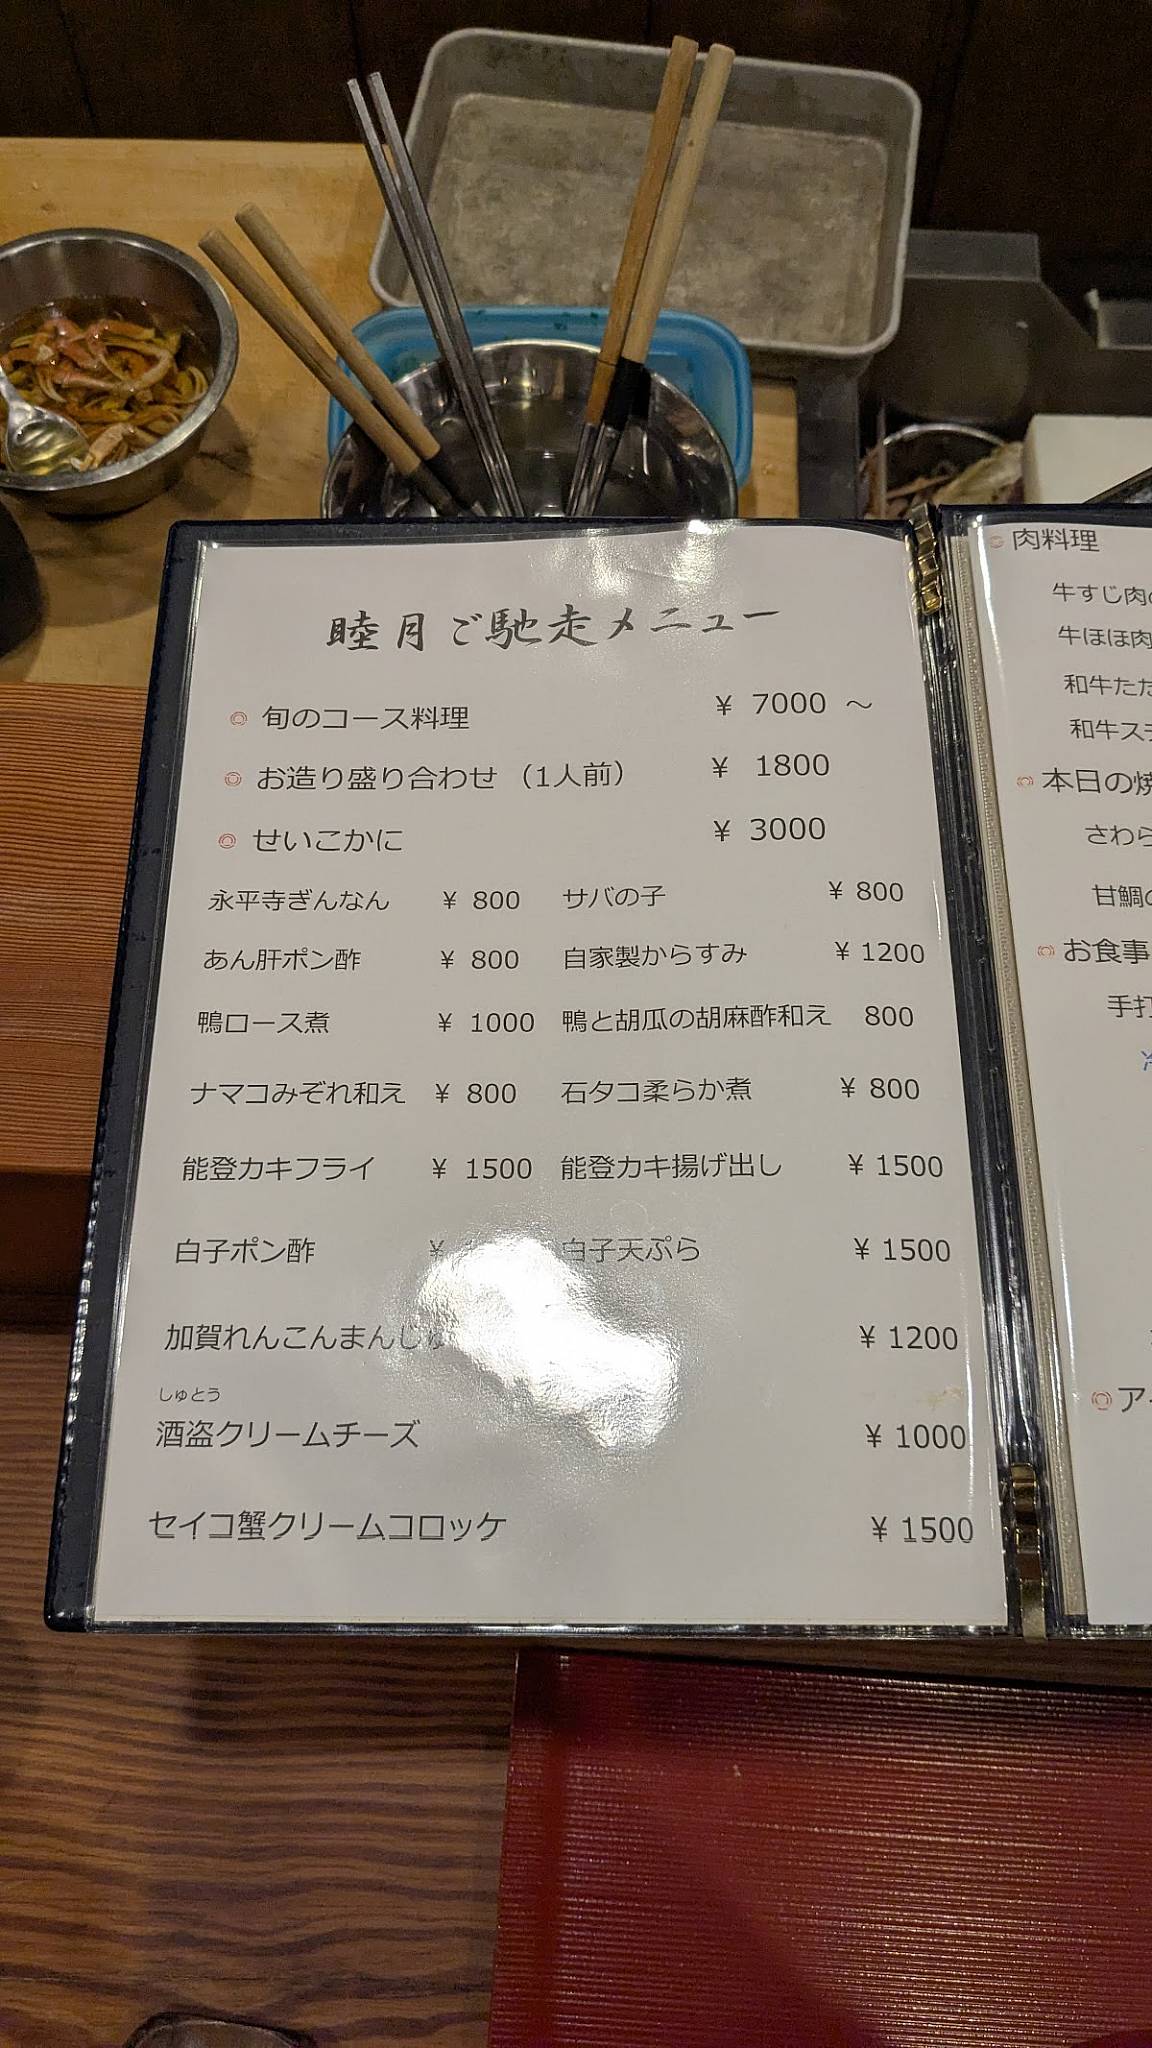 睦月ご馳走メニュー
旬のコース料理 ¥ 7000 ～
お造り盛り合わせ （1人前） ¥ 1800
せいこかに ¥ 3000
永平寺ぎんなん ¥ 800 サバの子 ¥ 800
あん肝ポン酢 ¥ 800 自家製からすみ ¥ 1200
鴨ロース煮 ¥ 1000 鴨と胡瓜の胡麻酢和え 800
ナマコみぞれ和え ¥ 800 石タコ柔らか煮 ¥ 800
能登カキフライ ¥ 1500 能登カキ揚げ出し ¥ 1500
白子ポン酢 ¥ 白子天ぷら ¥ 1500
加賀れんこんまんじゅ ¥ 1200
しゅとう
酒盗クリームチーズ ¥ 1000
セイコ蟹クリームコロッケ ¥ 1500
肉料理
牛すじ肉の
牛ほほ肉
和牛たた
和牛ステ
本日の焼
さわら
甘鯛の
お食事
手打
冷
ア